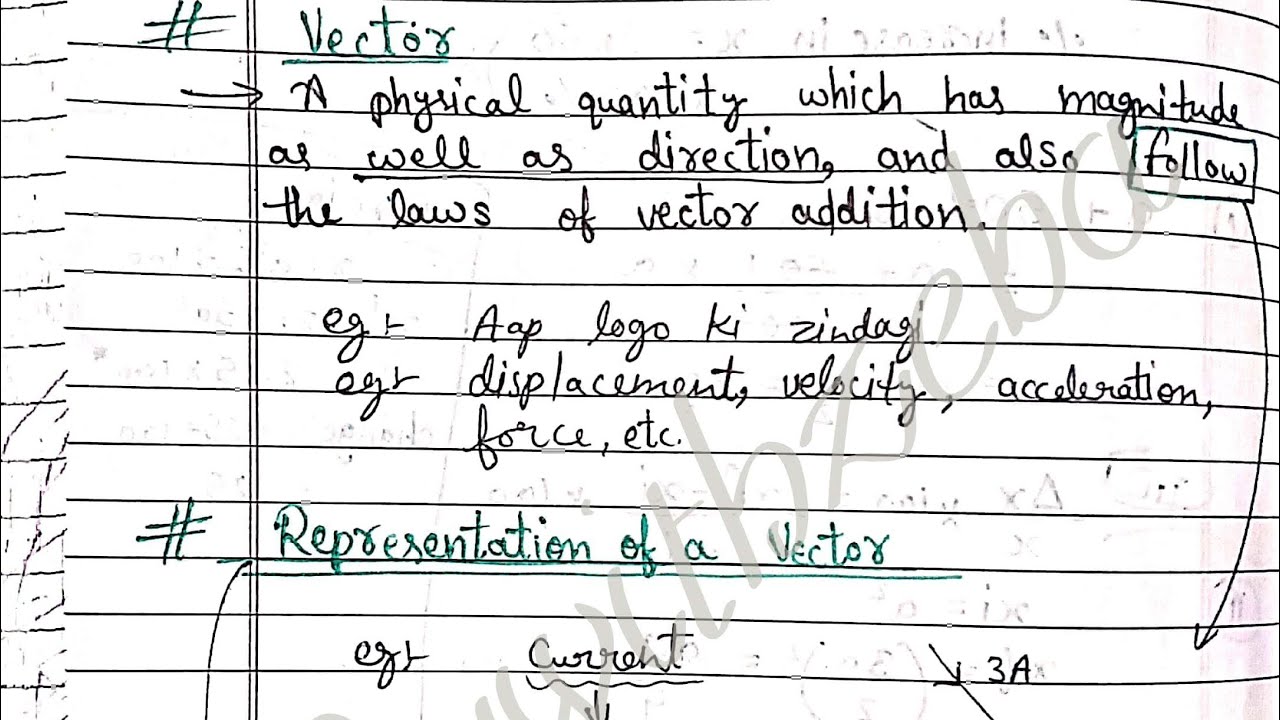 # Vector
→ A physical quantity which has magnitude
as well as direction, and also follow
the laws of vector addition.
eg:- Aap logo ki zindagi
eg:- displacement, velocity, acceleration,
force, etc.
# Representation of a Vector
eg:- Current 3A